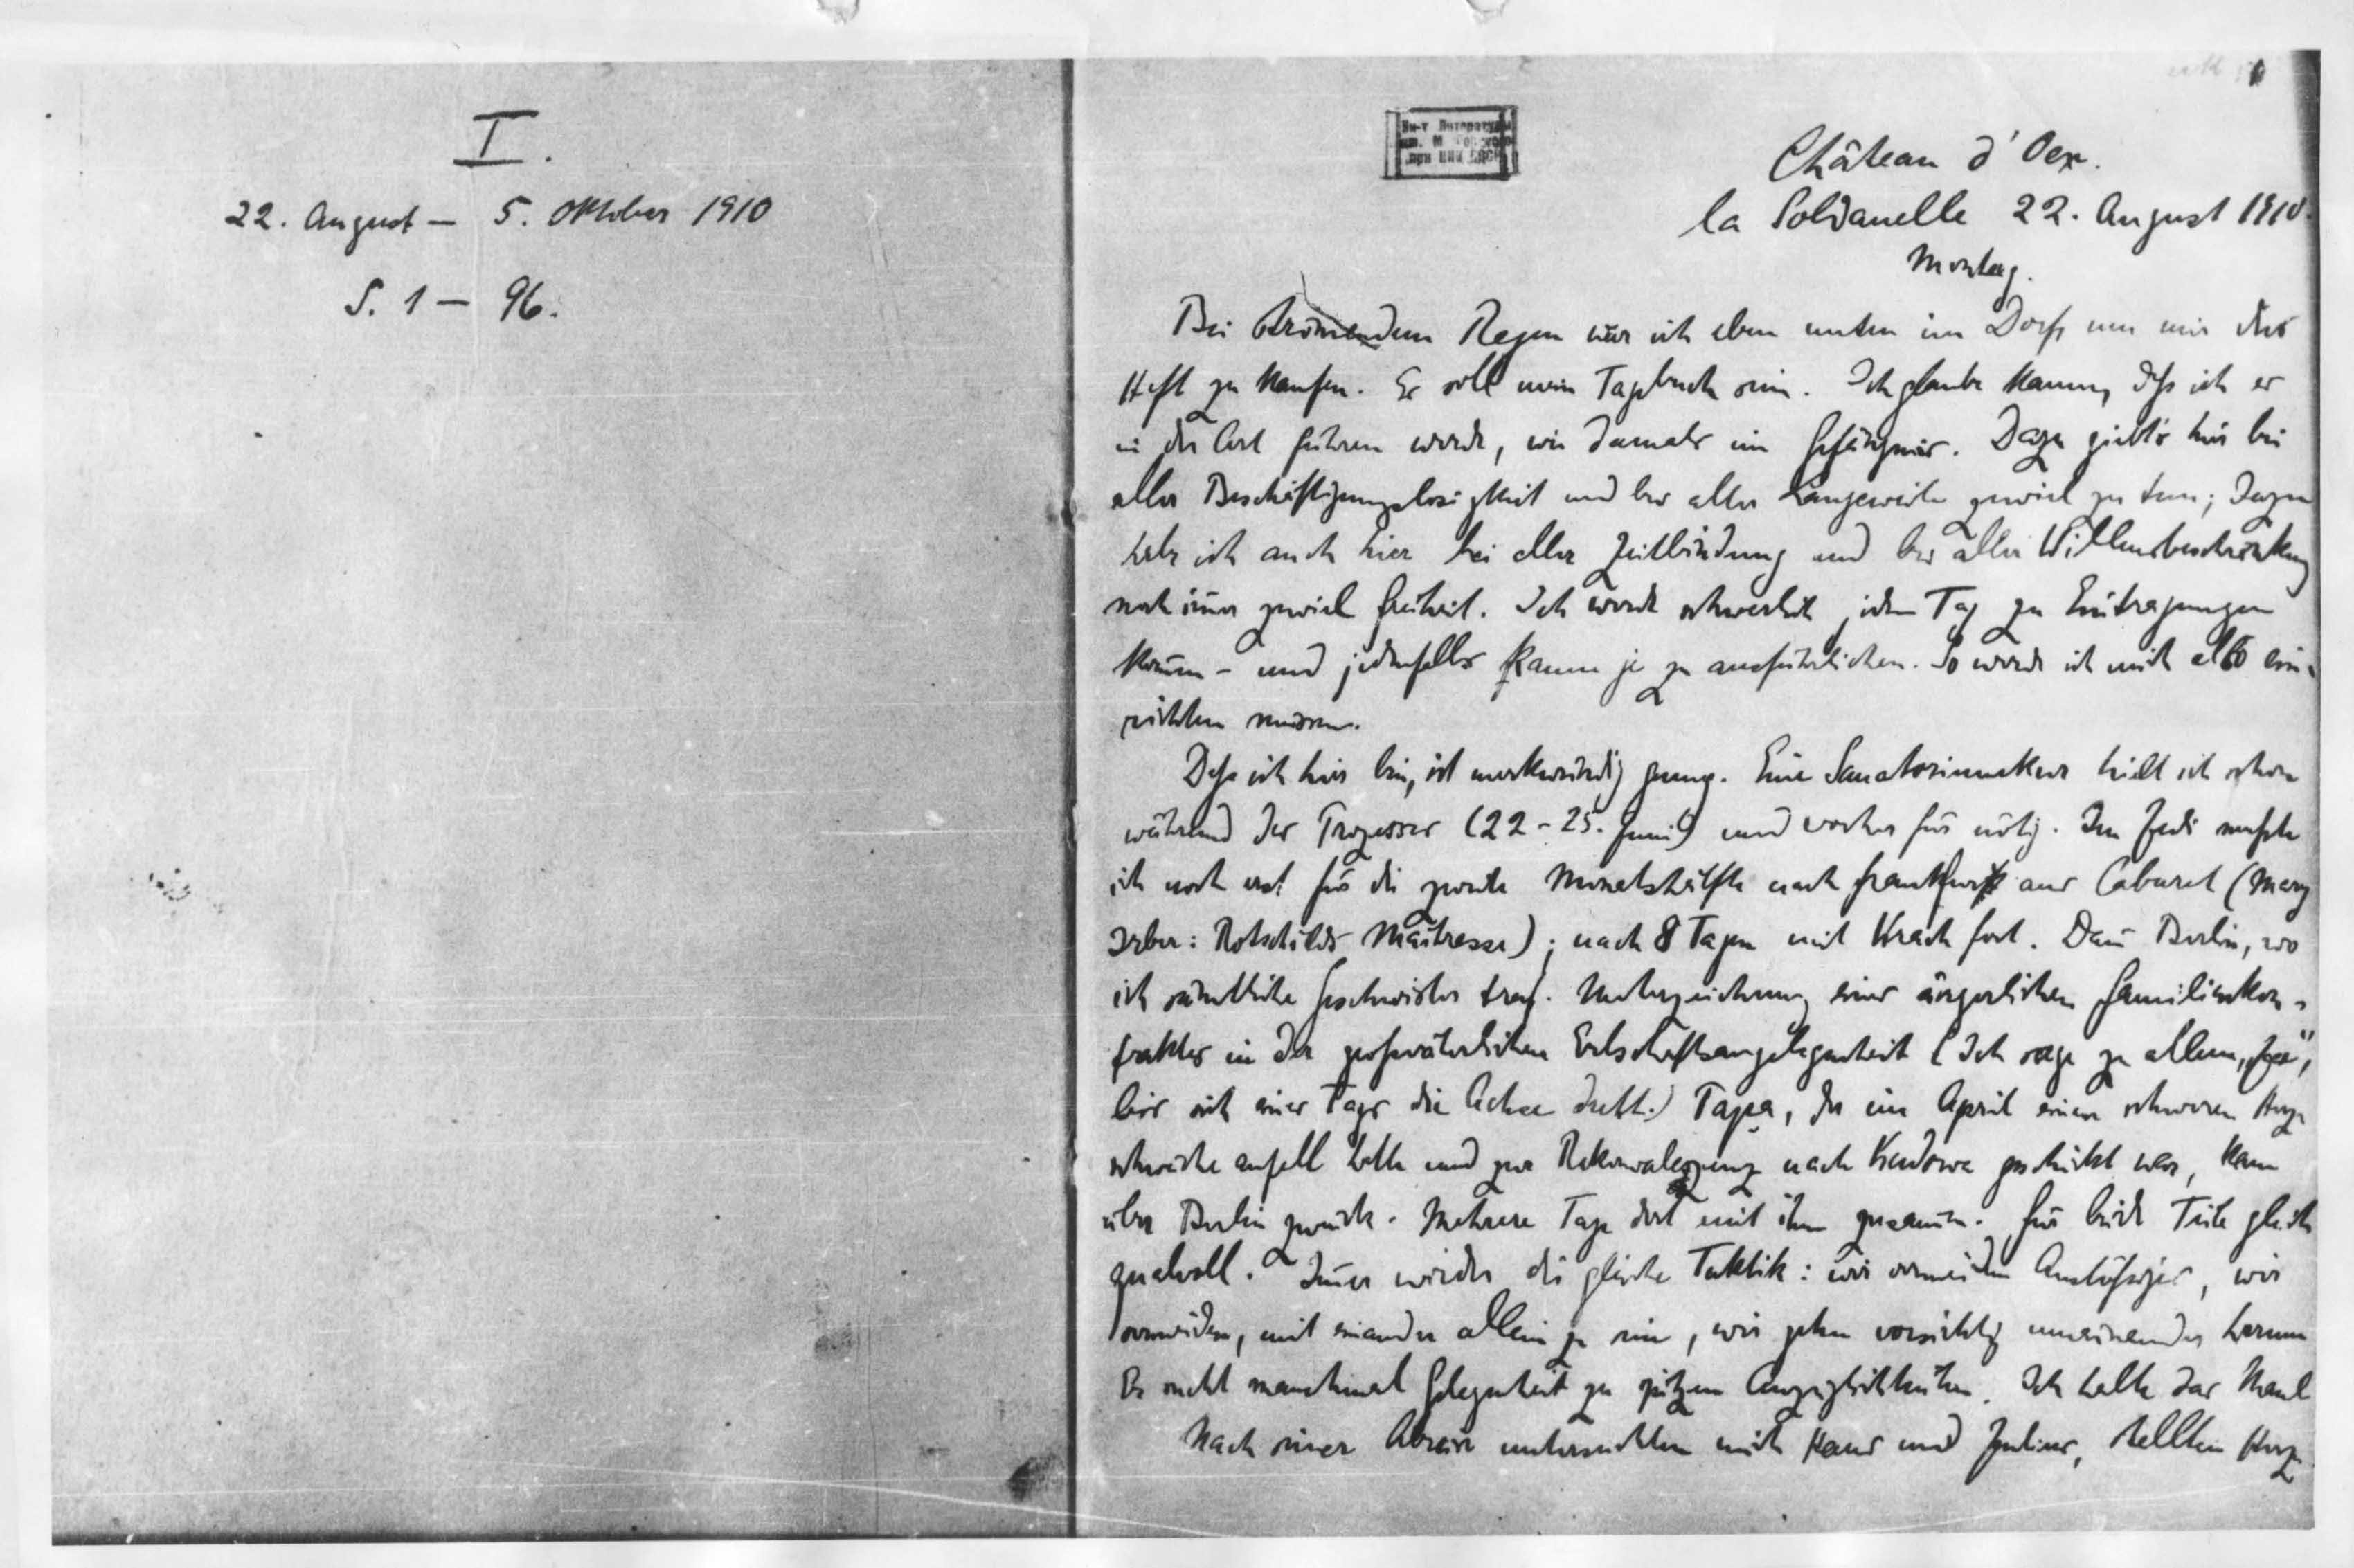 I.
22. August – 5. Oktober 1910
S. 1 – 96.
Ин-т Литературы
им. М. Горького
при ЦИК СССР
Château d'Oex.
la Soldanelle 22. August 1910.
Montag.
Bei strömendem Regen war ich eben unten im Dorf, um mir dies
Heft zu kaufen. Es soll mein Tagebuch sein. Ich glaube kaum, daß ich es
in der Art führen werde, wie damals im Gefängnis. Dazu giebt's hier bei
aller Beschäftigungslosigkeit und bei aller Langeweile zuviel zu tun; dazu
habe ich auch hier bei aller Zeitbindung und bei aller Willensbeschränkung
noch im̄er zuviel Freiheit. Ich werde schwerlich jeden Tag zu Eintragungen
kom̄en – und jedenfalls kaum je zu ausführlichen. So werde ich mich also ein-
richten müssen.
Daß ich hier bin, ist merkwürdig genug. Eine Sanatoriumskur hielt ich schon
während des Prozesses (22 – 25. Juni) und vorher für nötig. Im Juli mußte
ich noch erst für die zweite Monatshälfte nach Frankfurt ans Cabaret (Mary
Irber: Rotschilds Maitresse); nach 8 Tagen mit Krach fort. Dan̄ Berlin, wo
ich sämtliche Geschwister traf. Unterzeichnung eines ärgerlichen Familienkon-
traktes in der großväterlichen Erbschaftsangelegenheit (Ich sage zu allem „Ja“,
bis sich eines Tags die Achse dreht.) Papa, der im April einen schweren Herz-
schwäche anfall hatte und zur Rekonvaleszenz nach Kudowa geschickt war, kam
über Berlin zurück. Mehrere Tage dort mit ihm zusam̄en. Für beide Teile gleich
qualvoll. Im̄er wieder die gleiche Taktik: wir vermeiden Anstößiges, wir
vermeiden, mit einander allein zu sein, wir gehen vorsichtig umeinander herum
Er sucht manchmal Gelegenheit zu spitzen Anzüglichkeiten. Ich halte das Maul
Nach seiner Abreise untersuchten mich Hans und Julius, stellten Herz-